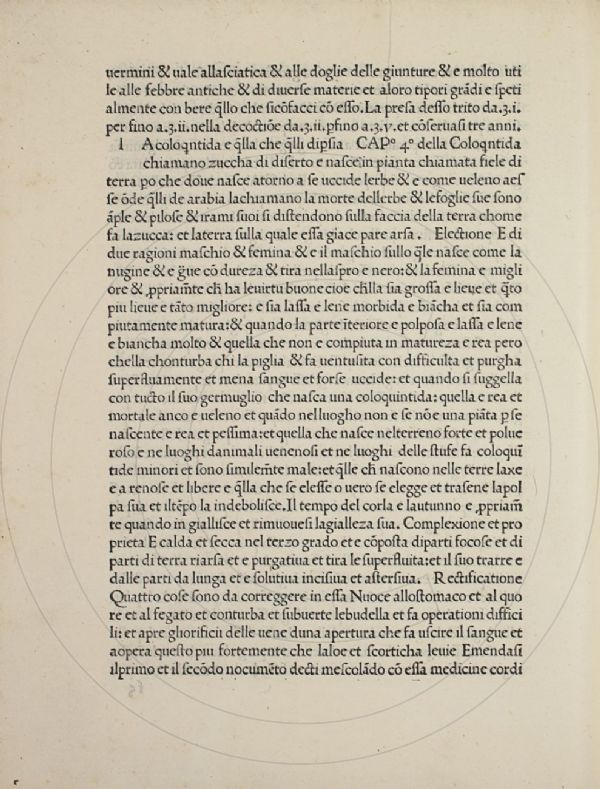 uermini & uale allasciatica & alle doglie delle giunture & e molto uti
le alle febbre antiche & di diuerse materie et aloro tipori grādi e speti
almente con bere q̄llo che sicōfacci cō esso. La presa desso trito da.ʒ.i.
per fino a.ʒ.ii. nella decoctiōe da.ʒ.ii.ꝑfino a.ʒ.v. et cōseruasi tre anni.
l A coloqntida e q̄lla che q̄lli dipsia CAPº 4º della Coloqntida
chiamano zuccha di diserto e nasce in pianta chiamata fiele di
terra po che doue nasce atorno a se uccide lerbe & e come ueleno aes
se ōde q̄lli de arabia lachiamano la morte dellerbe & lefoglie sue sono
āple & pilose & irami suoi si distendono sulla faccia della terra chome
fa lazucca: et laterra sulla quale essa giace pare arsa. Electione E di
due ragioni maschio & femina & e il maschio sullo q̄le nasce come la
nugine & e gue cō dureza & tira nellaspro e nero: & la femina e migli
ore & ꝓpriamte ch̄ ha leuirtu buone cioe ch̄lla sia grossa e lieue et q̄to
piu lieue e tāto migliore: e sia lassa e lene morbida e biācha et sia com
piutamente matura: & quando la parte īteriore e polposa e lassa e lene
e biancha molto & quella che non e compiuta in matureza e rea pero
chella chonturba chi la piglia & fa uentusita con difficulta et purgha
superfluamente et mena sangue et forse uccide: et quando si suggella
con tucto il suo germuglio che nasca una coloquintida: quella e rea et
mortale anco e ueleno et quādo nel luogho non e se nō e una piāta ꝑ se
nascente e rea et pessima: et quella che nasce nelterreno forte et polue
roso e ne luoghi danimali uenenosi et ne luoghi delle stufe fa coloquī
tide minori et sono similem̄te male: et q̄lle ch̄ nascono nelle terre laxe
e a renose et libere e q̄lla che se elesse o uero se elegge et trasene lapol
pa sua et iltēpo la indebolisce. Il tempo del corla e lautunno e ꝓpriam̄
te quando in giallisce et rimuouesi lagialleza sua. Complexione et pro
prieta E calda et secca nel terzo grado et e cōposta diparti focose et di
parti di terra riarsa et e purgatiua et tira le superfluita: et il suo trarre e
dalle parti da lunga et e solutiua incisiua et astersiua. Rectificatione
Quattro cose sono da correggere in essa Nuoce allostomaco et al quo
re et al fegato et conturba et subuerte lebudella et fa operationi diffici
li: et apre gliorificii delle uene duna apertura che fa uscire il sangue et
aopera questo piu fortemente che laloe et scorticha leuie Emendasi
ilprimo et il secōdo nocumēto decti mescolādo cō essa medicine cordi